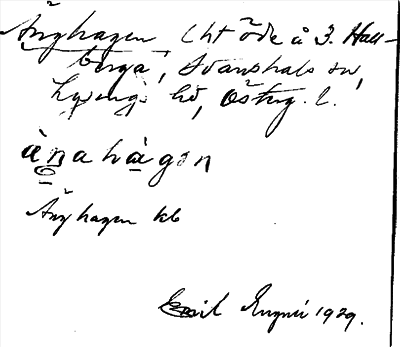 Änghagen (ht öde å 3. Hall-
berga, Svanshals sn,
Lysings hd, Österg. l.
ànahàgən
Änghagen kb
Emil 1929.